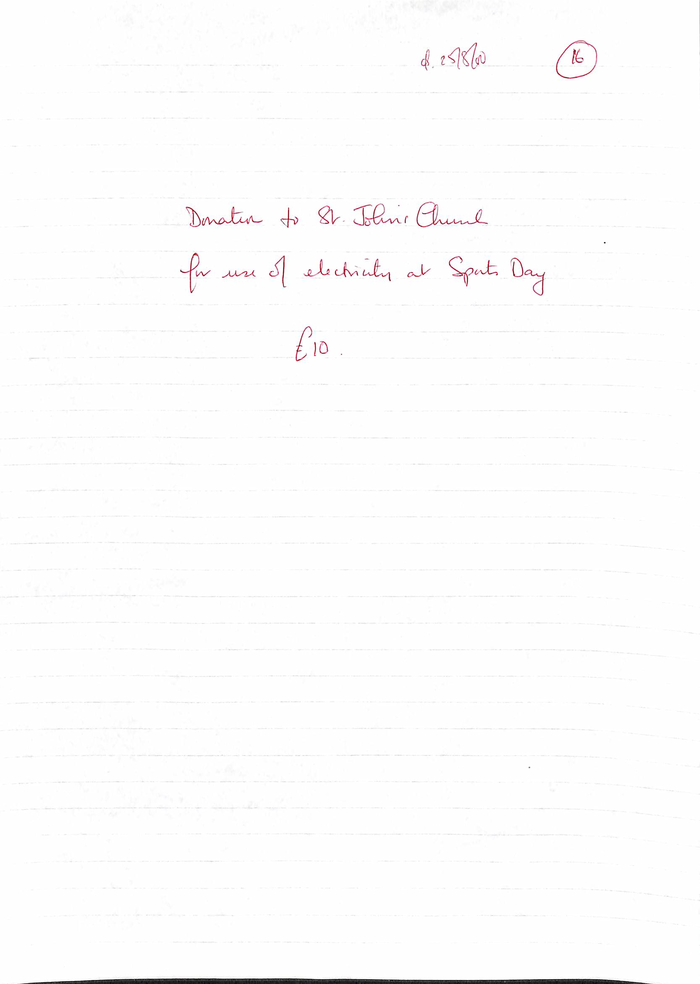 25/8/00 16
Donation to St. John's Church
for use of electricity at Sports Day
£10.